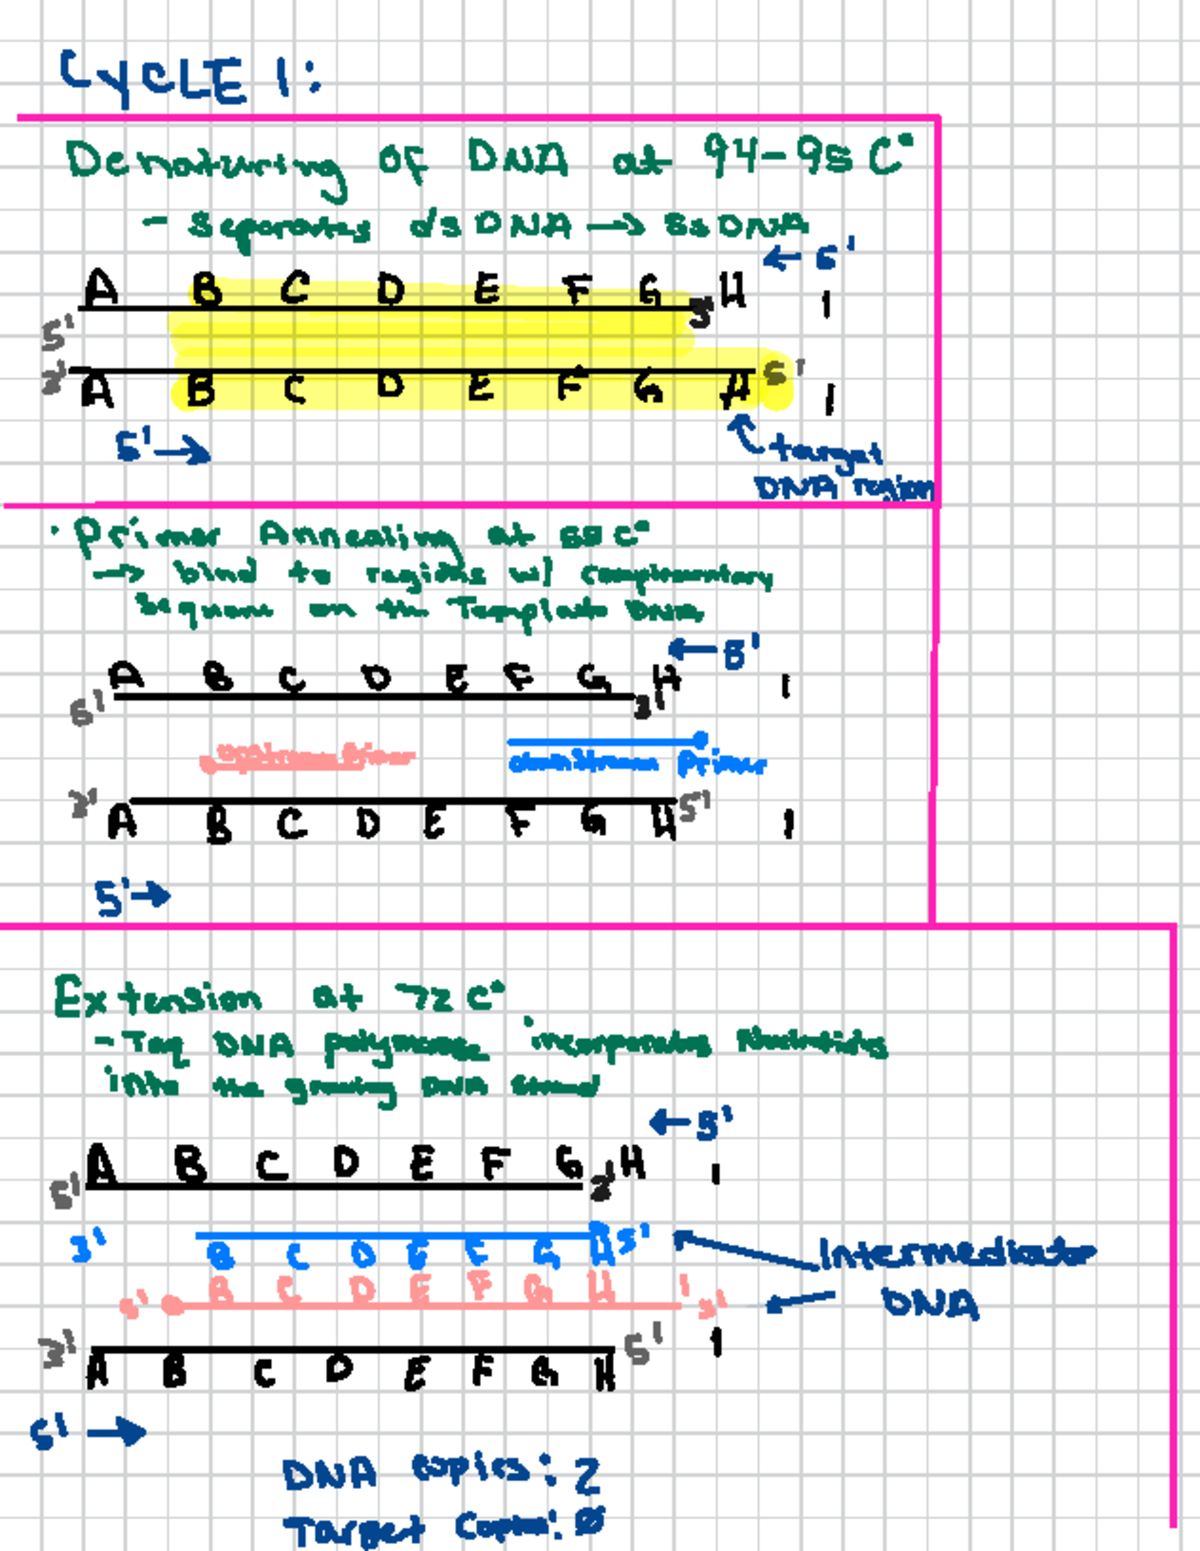 CYCLE 1:
Denaturing of DNA at 94-95 C°
- Separates ds DNA → SsDNA
← 5'
A B C D E F G 3' H I
5'
3' 5'
A B C D E F G H I
5' →
target
DNA region
· Primer Annealing at 55 C°
→ bind to regions w/ complementary
Sequence on the Template DNA
← 5'
A B C D E F G H I
5' 3'
upstream Primer
downstream Primer
3' 5'
A B C D E F G H I
5' →
Extension at 72 C°
- Taq DNA polymerase incorporates Nucleotides
into the growing DNA strand
← 5'
A B C D E F G H I
5' 3'
3' B C D E F G H 5'
Intermediate
DNA
5' B C D E F G H I 3'
3' 5' I
A B C D E F G H
5' →
DNA copies: 2
Target Copies: Ø